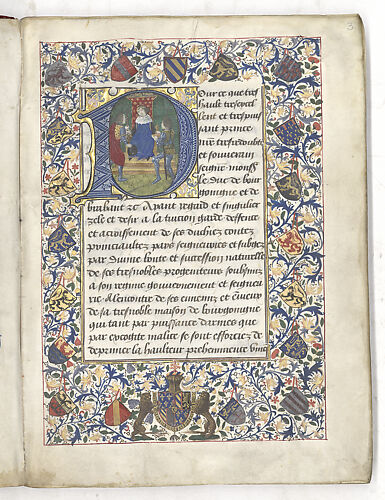 3
Pour ce que tres
hault tresexcel
lent et trespuis
sant prince
mon tresredoubte
et souuerain
seignr monssr
le Duc de bour
gouingne et de
brabant zc Ayant regard et singulier
zele et desir a la tuicion garde deffence
et acroissement de ses duchiez contez
principaultez pays seigneuries et subgez
par diuine bonte et succession naturelle
de ses tresnobles progeniteurs soubzmiz
a son regime gouuernement et seigneu
rie A lencontre de ses ennemiz et enuieux
de sa tresnoble maison de bourgouingne
qui tant par puissance darmes que
par excogite malice se sont efforcez de
deprimer la haulteur preheminente